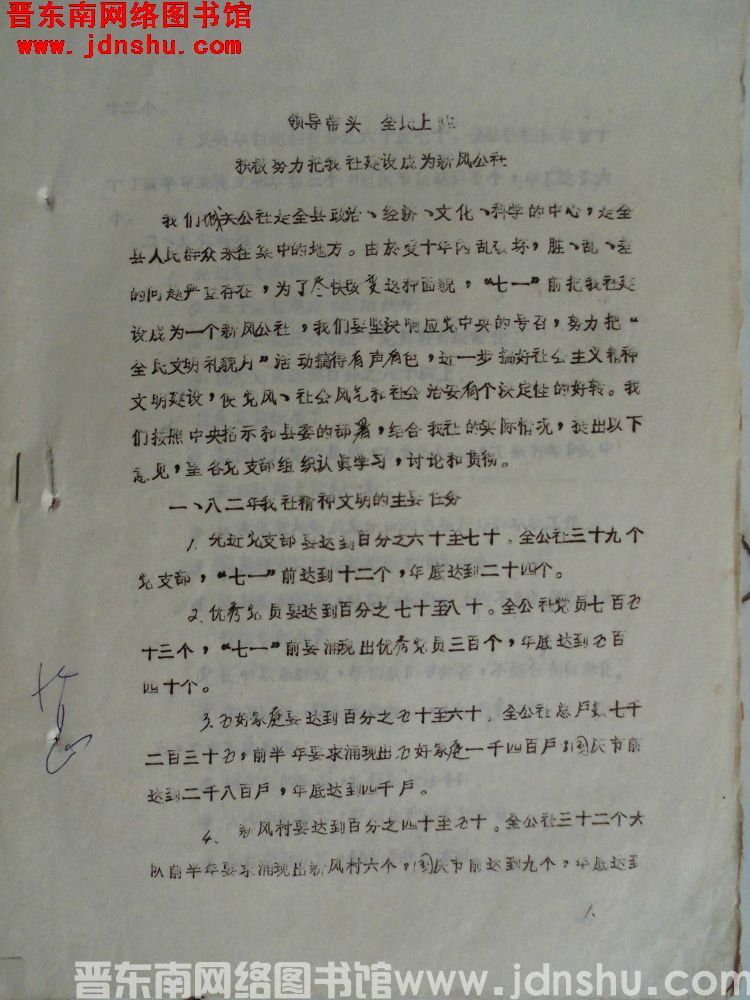 晋东南网络图书馆
www.jdnshu.com
领导带头 全民上阵
积极努力把我社建设成为新风公社
我们城关公社是全县政治、经济、文化、科学的中心，是全
县人民群众来往集中的地方。由於受十年内乱破坏，脏、乱、差
的问题严重存在，为了尽快改变这种面貌，“七一”前把我社建
设成为一个新风公社，我们要坚决响应党中央的号召，努力把“
全民文明礼貌月”活动搞得有声有色，进一步搞好社会主义精神
文明建设，使党风、社会风气和社会治安有个决定性的好转。我
们按照中央指示和县委的部署，结合我社的实际情况，提出以下
意见，望各党支部组织认真学习，讨论和贯彻。
一、八二年我社精神文明的主要任务
1.先进党支部要达到百分之六十至七十。全公社三十九个
党支部，“七一”前达到十二个，年底达到二十四个。
2.优秀党员要达到百分之七十至八十。全公社党员七百五
十三个，“七一”前要涌现出优秀党员三百个，年底达到五百
四十个。
3.五好家庭要达到百分之五十至六十。全公社总户数七千
二百三十五，前半年要求涌现出五好家庭一千四百户，国庆节前
达到二千八百户，年底达到四千户。
4.新风村要达到百分之四十至五十。全公社三十二个大
队前半年要求涌现出新风村六个，国庆节前达到九个，年底达到
1.
晋东南网络图书馆www.jdnshu.com